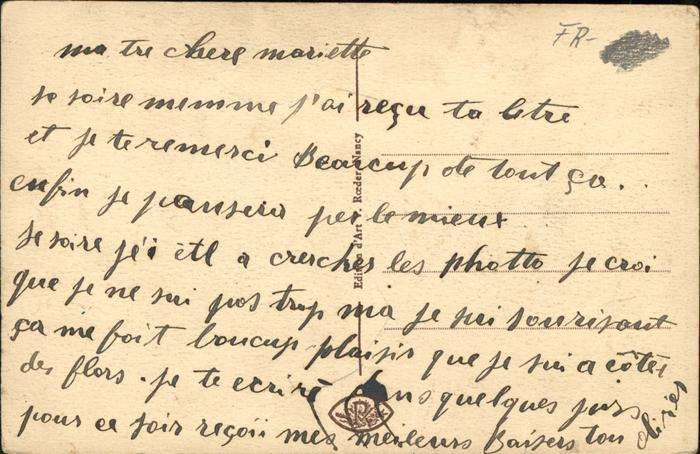 FR-
ma tre chere mariette
se soire memme j'ai reçu ta letre
et je te remerci Beaucup de tout ça.
enfin je panserà per le mieux
se soire j'ei été a crercher les photto je croi
que je ne sui pas trop ma je sui sourisant
ça me fait boucup plaisir que je sui a côtés
des flors. je te ecrire ans quelques jurs
pour ce soir reçoii mes meileurs Baisers ton
Edition d'Art Rœder Nancy